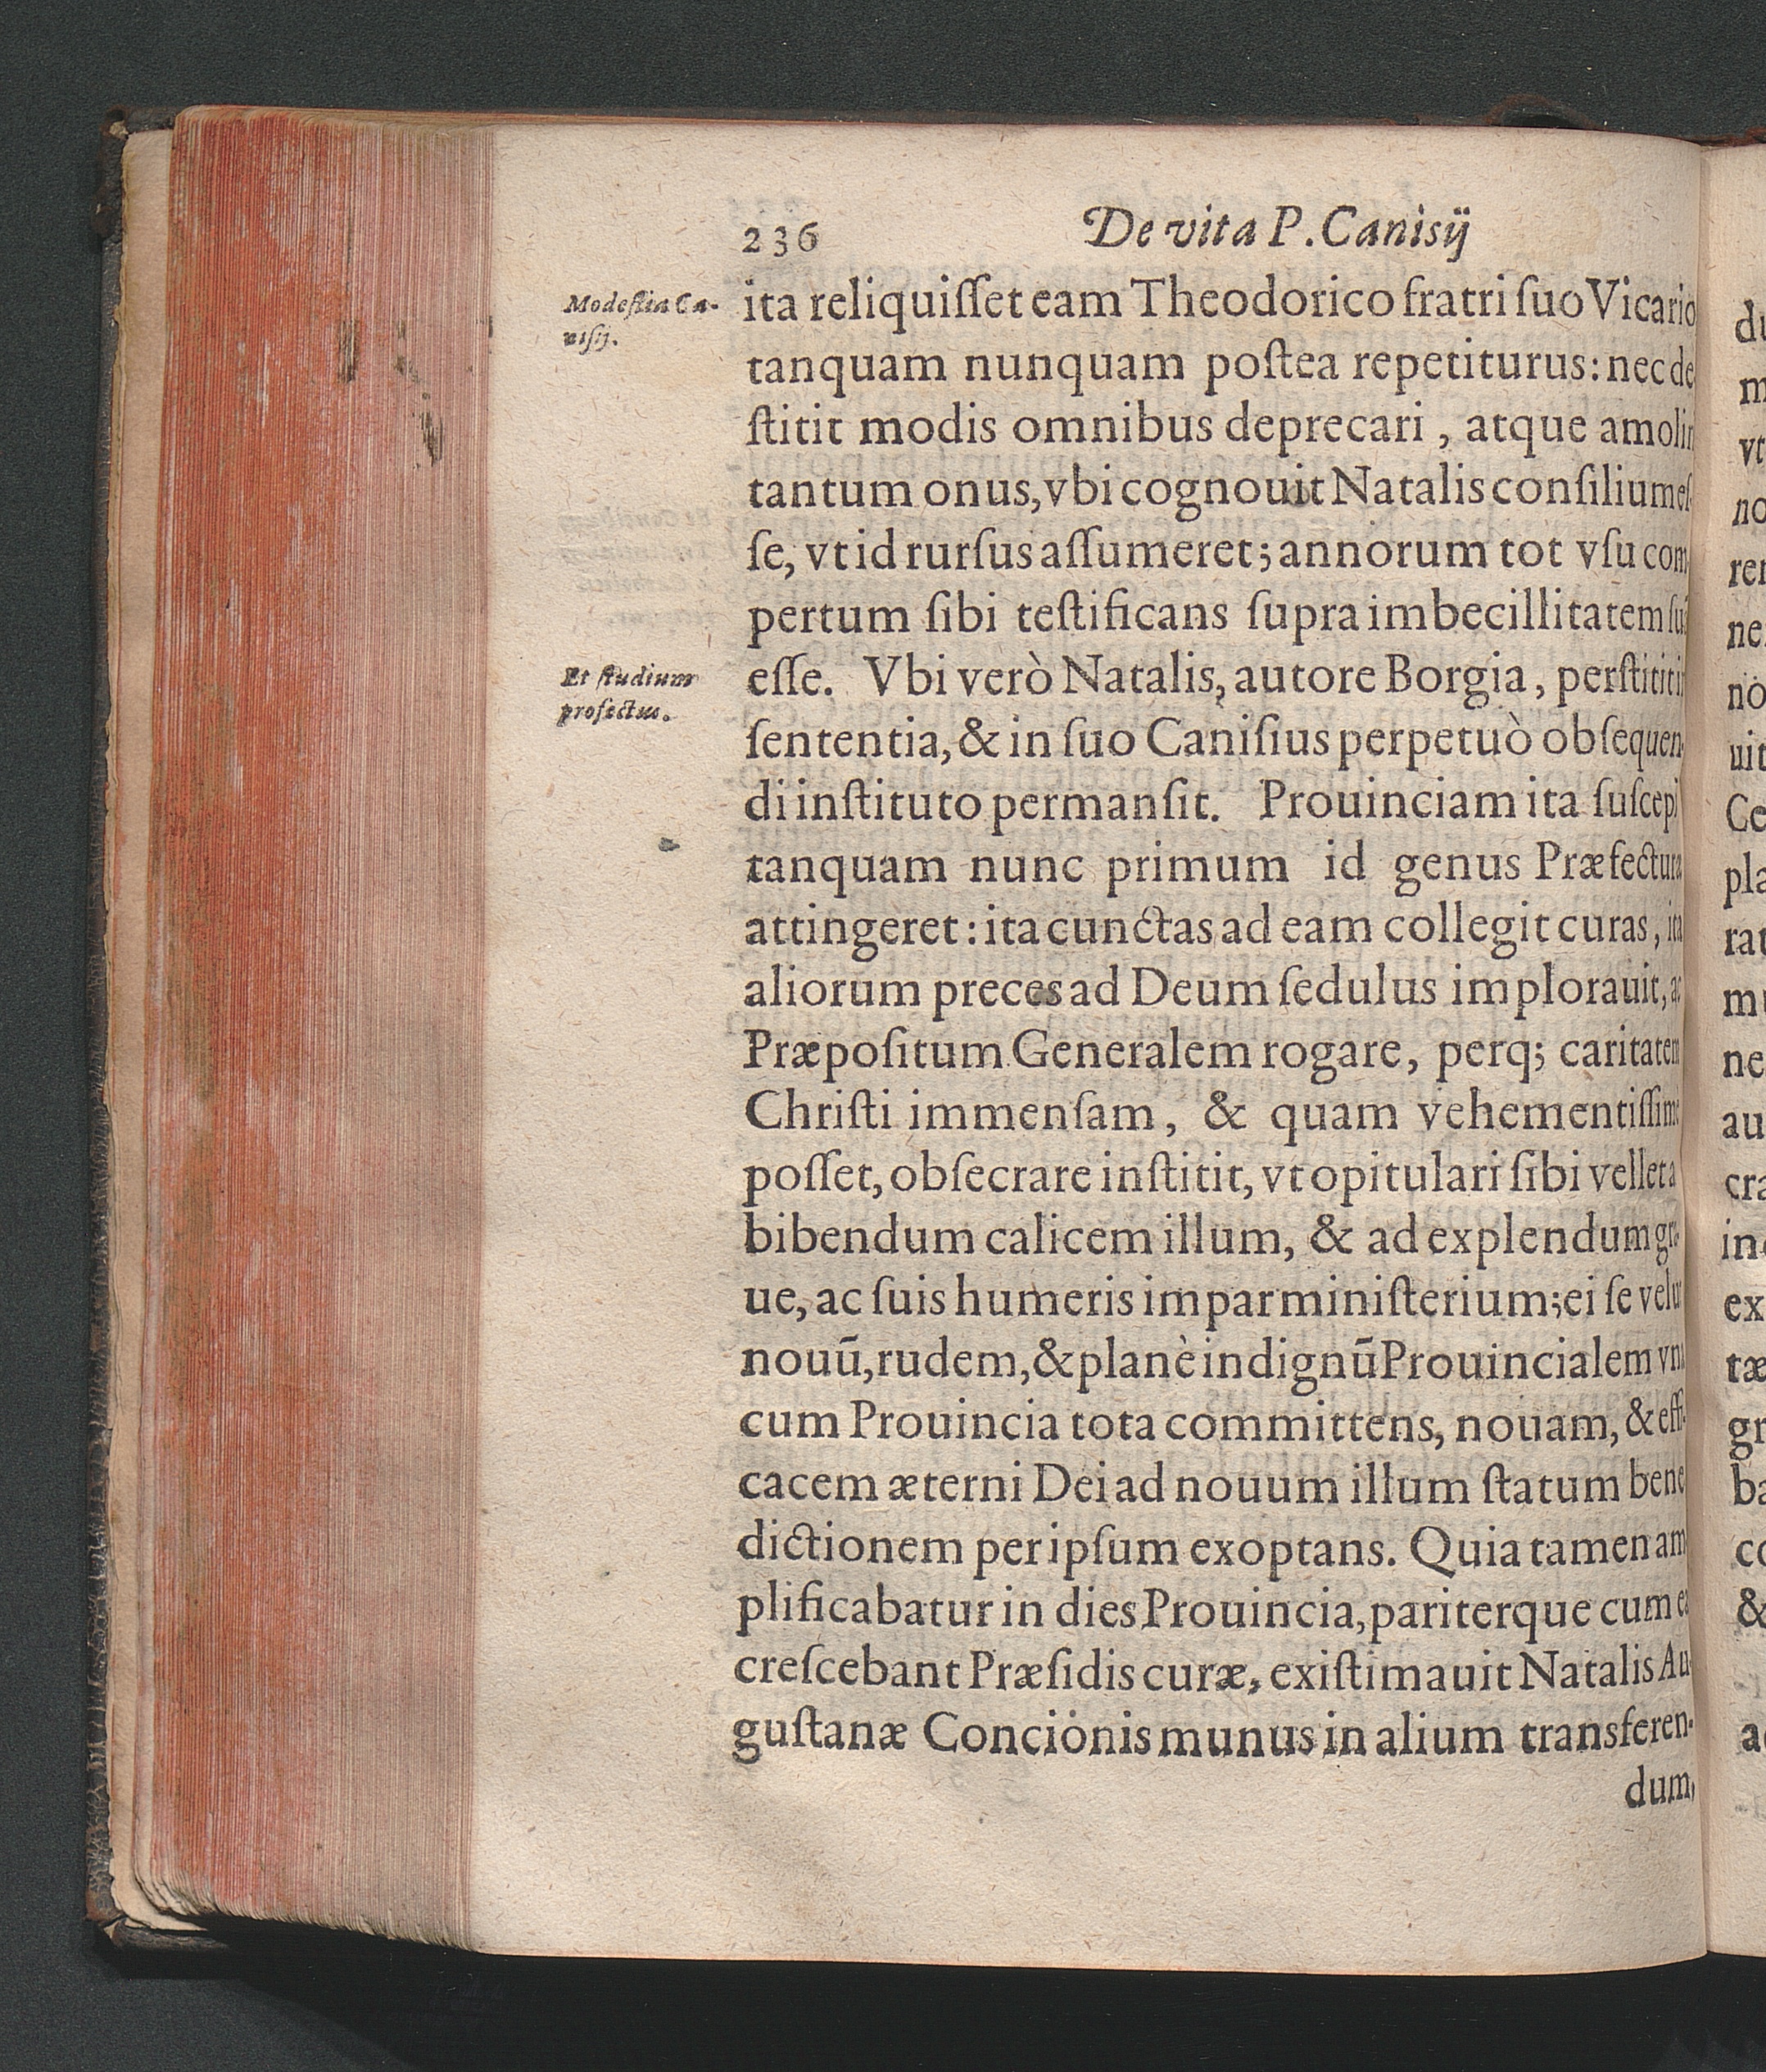 236 De vita P. Canisij
Modestia Ca-
nisij.
ita reliquiſſet eam Theodorico fratri ſuo Vicario
tanquam nunquam poſtea repetiturus: nec de
ſtitit modis omnibus deprecari, atque amolir
tantum onus, vbi cognouit Natalis conſilium eſ-
ſe, vt id rurſus aſſumeret; annorum tot vſu com
pertum ſibi teſtificans ſupra imbecillitatem
Et ſtudium
profectus.
eſſe. Vbi verò Natalis, autore Borgia, perſtitit i
ſententia, & in ſuo Caniſius perpetuò obſequen
di inſtituto permanſit. Prouinciam ita ſuſcepi
tanquam nunc primum id genus Præfectura
attingeret: ita cunctas ad eam collegit curas, ita
aliorum preces ad Deum ſedulus implorauit, ac
Præpoſitum Generalem rogare, perq; caritatem
Chriſti immenſam, & quam vehementiſſime
poſſet, obſecrare inſtitit, vt opitulari ſibi vellet a
bibendum calicem illum, & ad explendum gra-
ue, ac ſuis humeris impar miniſterium; ei ſe velut
nouū, rudem, & planè indignū Prouincialem vna
cum Prouincia tota committens, nouam, & effi-
cacem æterni Dei ad nouum illum ſtatum bene
dictionem per ipſum exoptans. Quia tamen am
plificabatur in dies Prouincia, pariterque cum ea
creſcebant Præſidis curæ, exiſtimauit Natalis Au
guſtanæ Concionis munus in alium transferen-
dum,